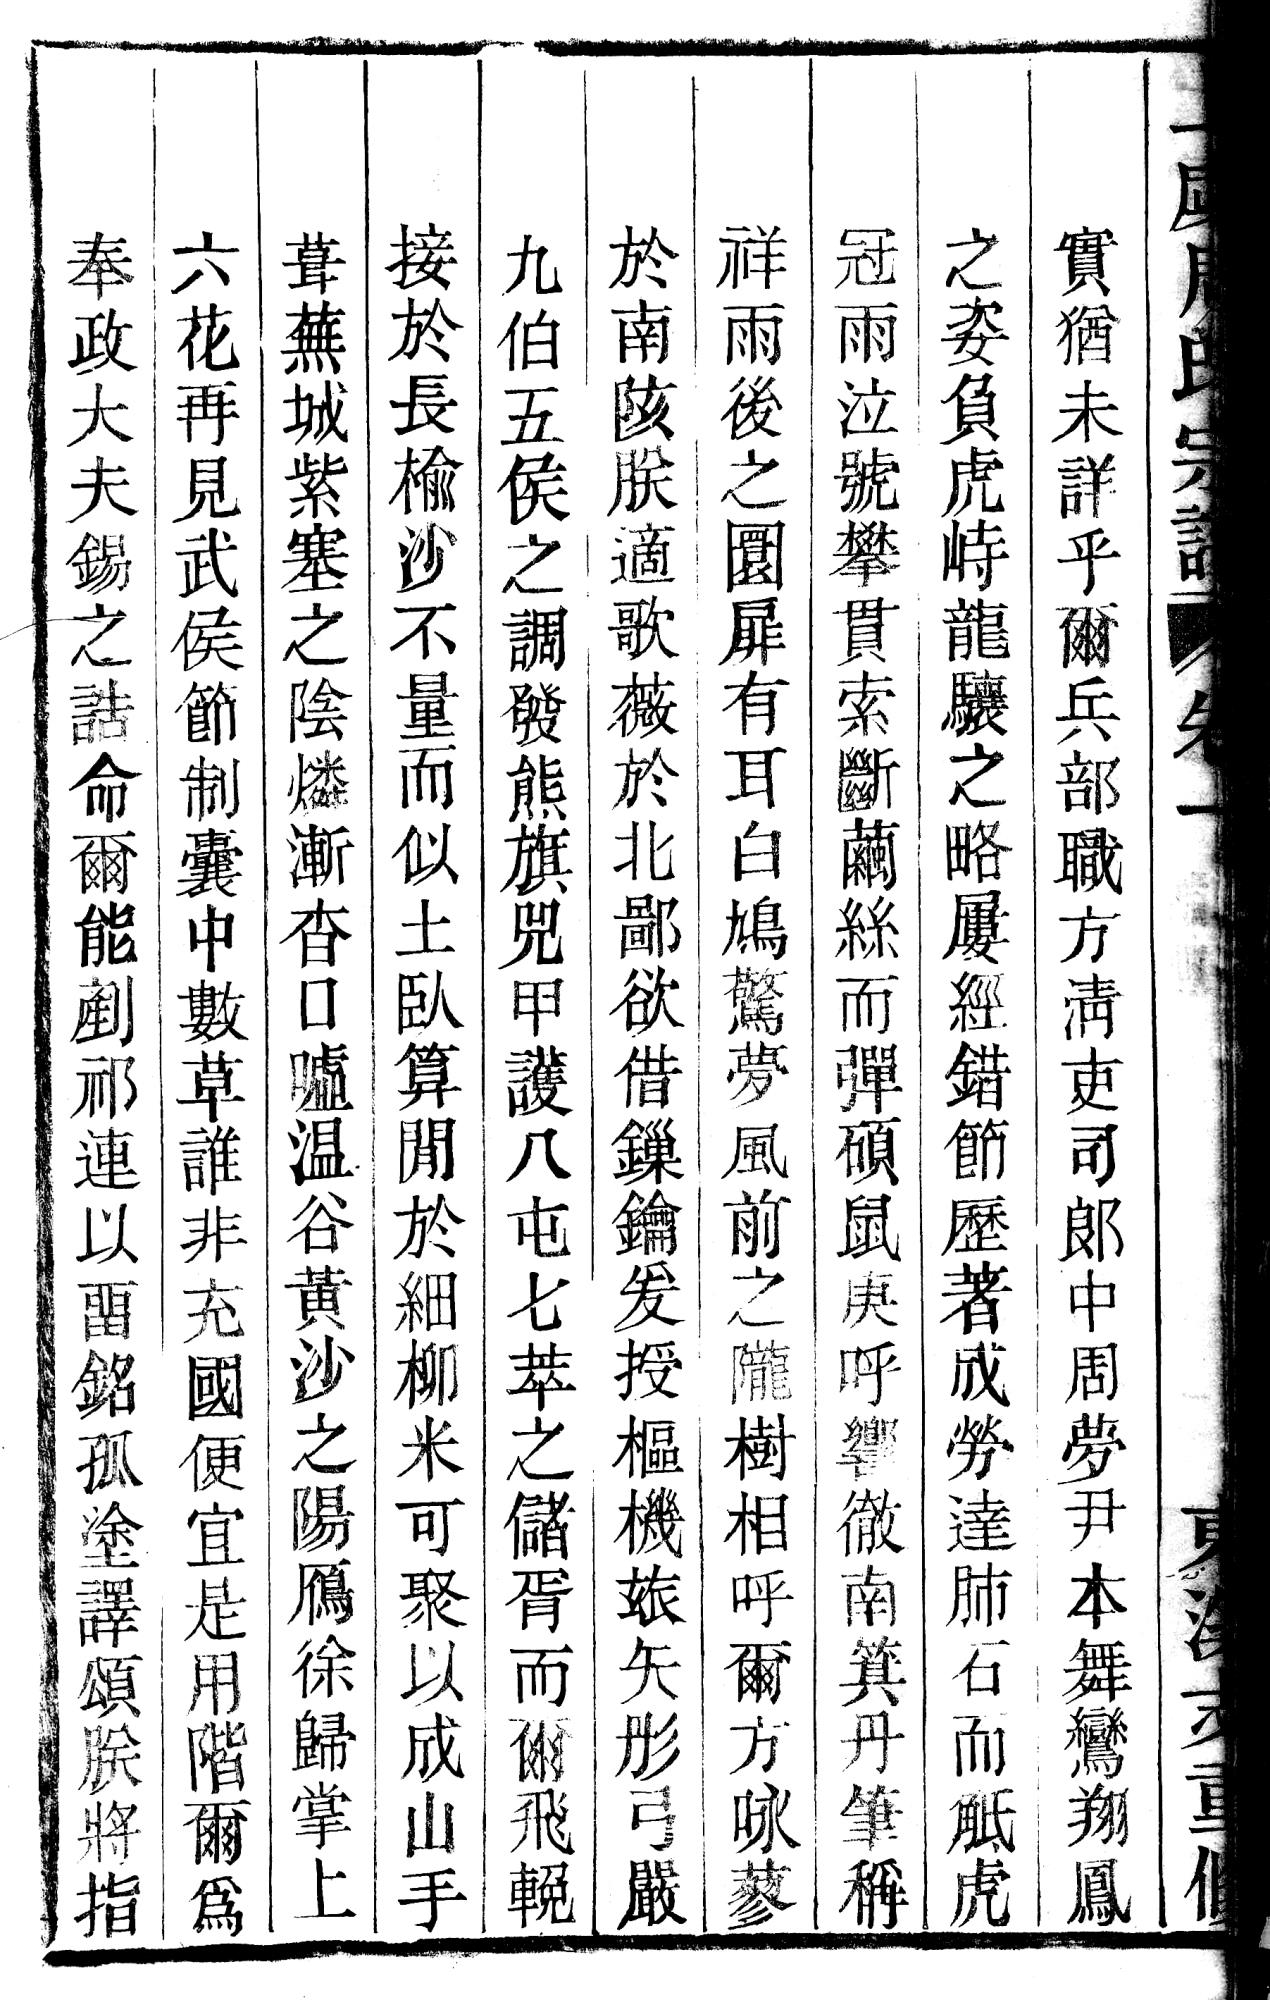 實猶未詳乎爾兵部職方淸吏司郞中周夢尹本舞鸞翔鳳
之姿負虎峙龍驤之略屢經錯節歷著成勞達肺石而觝虎
冠雨泣號攀貫索斷繭絲而彈碩鼠庚呼響徹南箕丹筆稱
祥雨後之圜扉有耳白鳩驚夢風前之隴樹相呼爾方咏蓼
於南陔朕適歌薇於北鄙欲借鏁鑰爰授樞機玈矢彤弓嚴
九伯五侯之調發熊旗兕甲護八屯七萃之儲胥而爾飛輓
接於長楡沙不量而似土臥算閒於細柳米可聚以成山手
葺蕪城紫塞之陰燐漸杳口噓温谷黃沙之陽鴈徐歸掌上
六花再見武侯節制囊中數草誰非充國便宜是用階爾爲
奉政大夫錫之誥命爾能剷祁連以畱銘孤塗譯頌朕將指